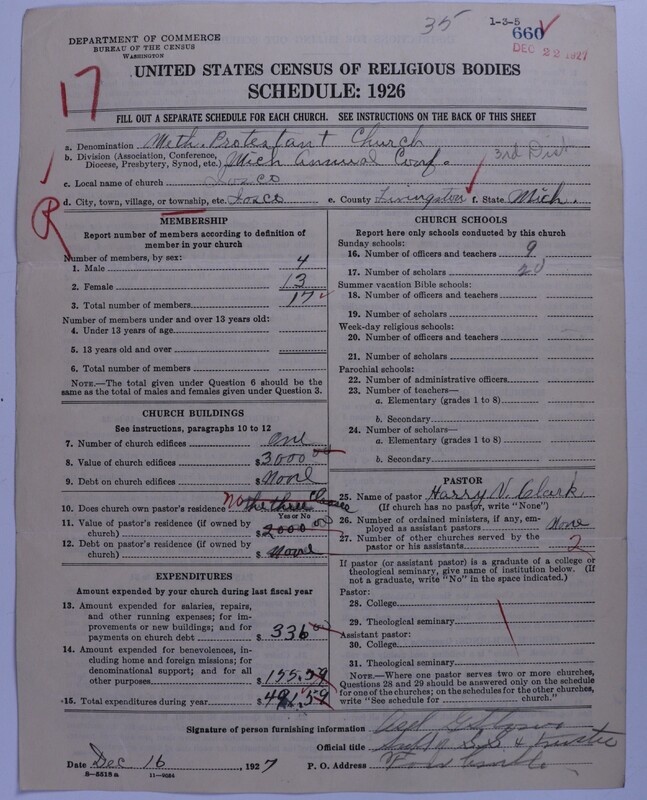 35
1-3-5
660
DEC 22 1927
DEPARTMENT OF COMMERCE
BUREAU OF THE CENSUS
WASHINGTON
17
UNITED STATES CENSUS OF RELIGIOUS BODIES
SCHEDULE: 1926
FILL OUT A SEPARATE SCHEDULE FOR EACH CHURCH. SEE INSTRUCTIONS ON THE BACK OF THIS SHEET
a. Denomination Meth. Protestant Church
b. Division (Association, Conference, Diocese, Presbytery, Synod, etc.) Mich Annual Conf. 3rd Dist
c. Local name of church Iosco
d. City, town, village, or township, etc. Iosco e. County Livingston f. State Mich.
R
MEMBERSHIP
Report number of members according to definition of
member in your church
Number of members, by sex:
1. Male 4
2. Female 13
3. Total number of members 17
Number of members under and over 13 years old:
4. Under 13 years of age
5. 13 years old and over
6. Total number of members
NOTE.—The total given under Question 6 should be
same as the total of males and females given under Question 3.
CHURCH BUILDINGS
See instructions, paragraphs 10 to 12
7. Number of church edifices One
8. Value of church edifices $3000 00
9. Debt on church edifices $None
10. Does church own pastor's residence? No the three
Yes or No
11. Value of pastor's residence (if owned by
church) $2000 00
12. Debt on pastor's residence (if owned by
church) $None
EXPENDITURES
Amount expended by your church during last fiscal year
13. Amount expended for salaries, repairs,
and other running expenses; for im-
provements or new buildings; and for
payments on church debt $336 00
14. Amount expended for benevolences, in-
cluding home and foreign missions; for
denominational support; and for all
other purposes $155.59
15. Total expenditures during year $491.59
CHURCH SCHOOLS
Report here only schools conducted by this church
Sunday schools:
16. Number of officers and teachers 9
17. Number of scholars 20
Summer vacation Bible schools:
18. Number of officers and teachers
19. Number of scholars
Week-day religious schools:
20. Number of officers and teachers
21. Number of scholars
Parochial schools:
22. Number of administrative officers
23. Number of teachers—
a. Elementary (grades 1 to 8)
b. Secondary
24. Number of scholars—
a. Elementary (grades 1 to 8)
b. Secondary
PASTOR
25. Name of pastor Harry V. Clark
(If church has no pastor, write "None")
26. Number of ordained ministers, if any, em-
ployed as assistant pastors None
27. Number of other churches served by the
pastor or his assistants 2
If pastor (or assistant pastor) is a graduate of a college or
theological seminary, give name of institution below. (If
not a graduate, write "No" in the space indicated.)
Pastor:
28. College
29. Theological seminary
Assistant pastor:
30. College
31. Theological seminary
NOTE.—Where one pastor serves two or more churches,
Questions 28 and 29 should be answered only on the schedule
for one of the churches; on the schedules for the other churches,
write "See schedule for church."
Signature of person furnishing information
Official title & Trustee
Date Dec 16, 1927 P. O. Address
8-5518 a 11-9034